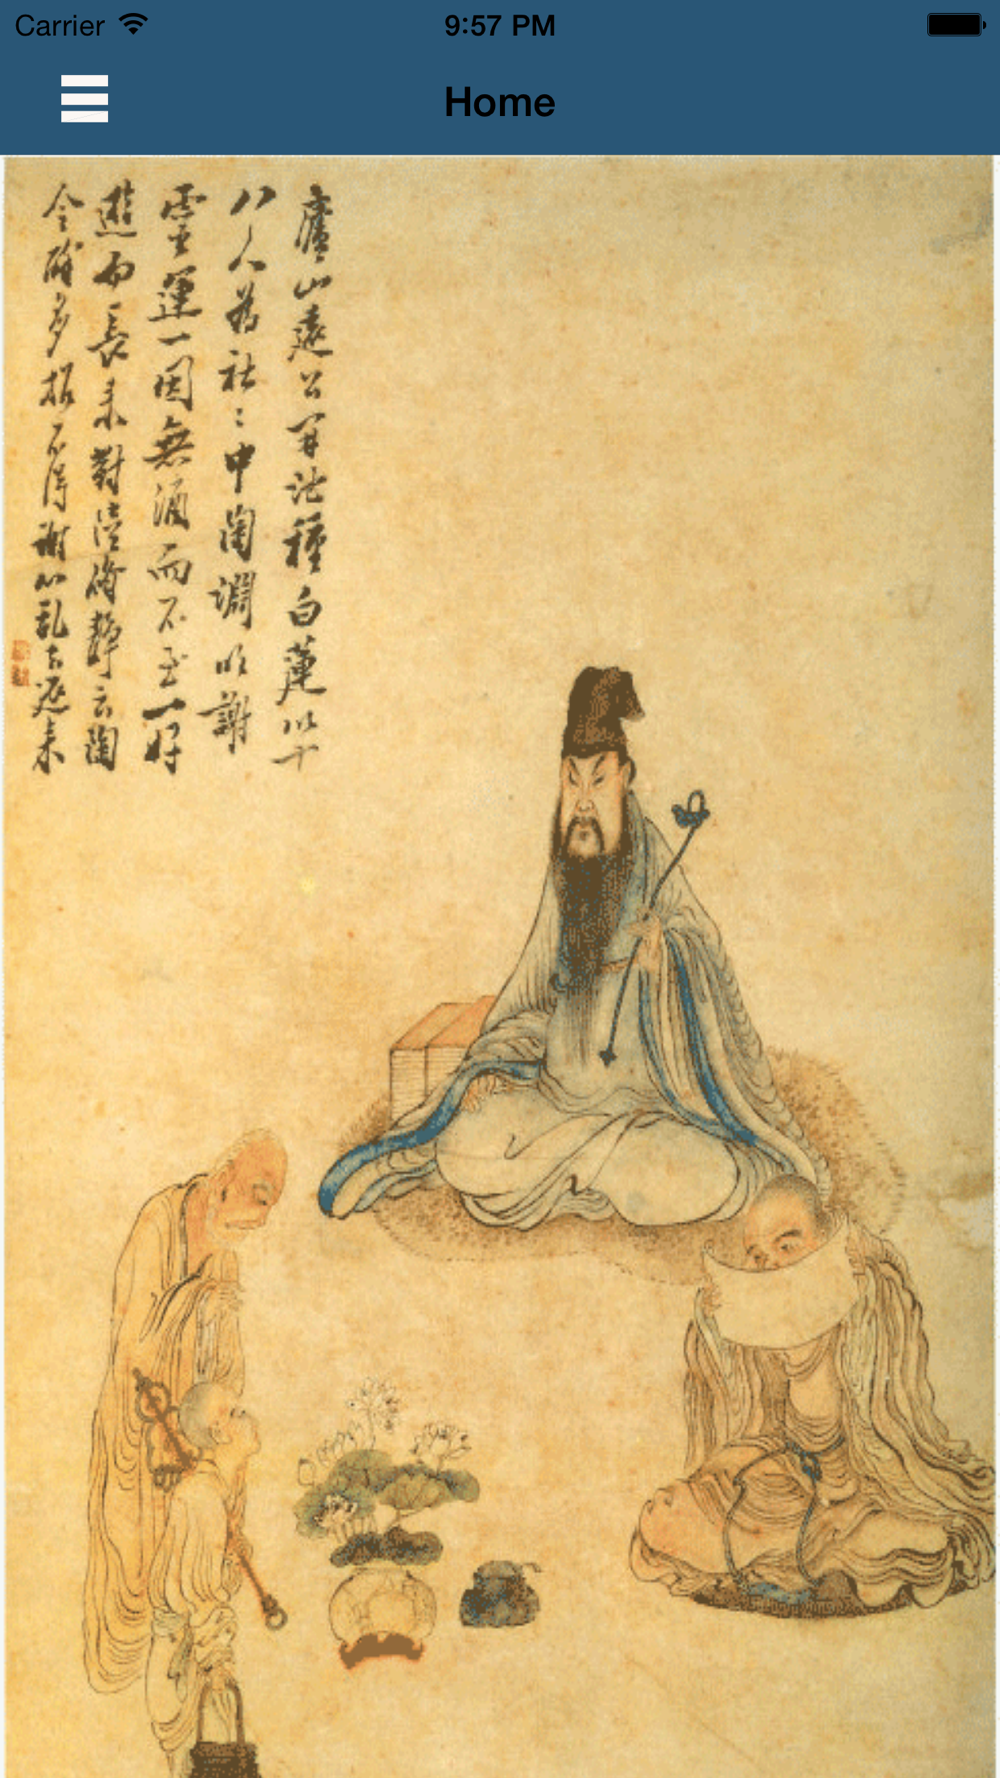 Carrier
9:57 PM
Home
廬山遠公開池種白蓮以十
八人為社社中陶淵明謝
靈運一因無酒而不至一好
遊而長未對陸脩靜云陶
令醉多招不得謝心亂去還來